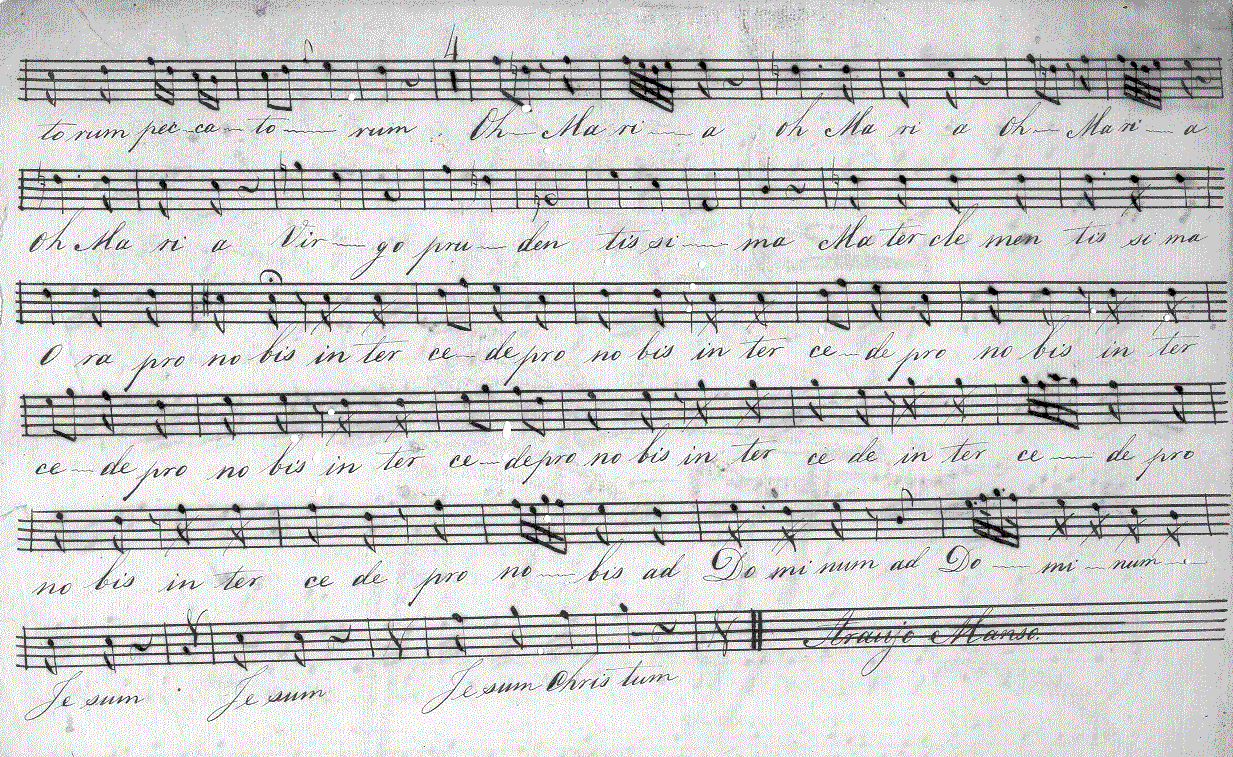 4
torum pec-ca-to-rum Oh-Mari-a oh Maria Oh-Mari-a
Oh Maria Vir-go pru-den tissi-ma Mater cle men tis si ma
O ra pro no bis in ter ce-de pro no bis in ter ce-de pro no bis in ter
ce-de pro no bis in ter ce-de pro no bis in ter ce de in ter ce-de pro
no bis in ter ce de pro no-bis ad Do mi num ad Do-mi-num
Araujo Manso.
Je sum Je sum Je sum Chris tum